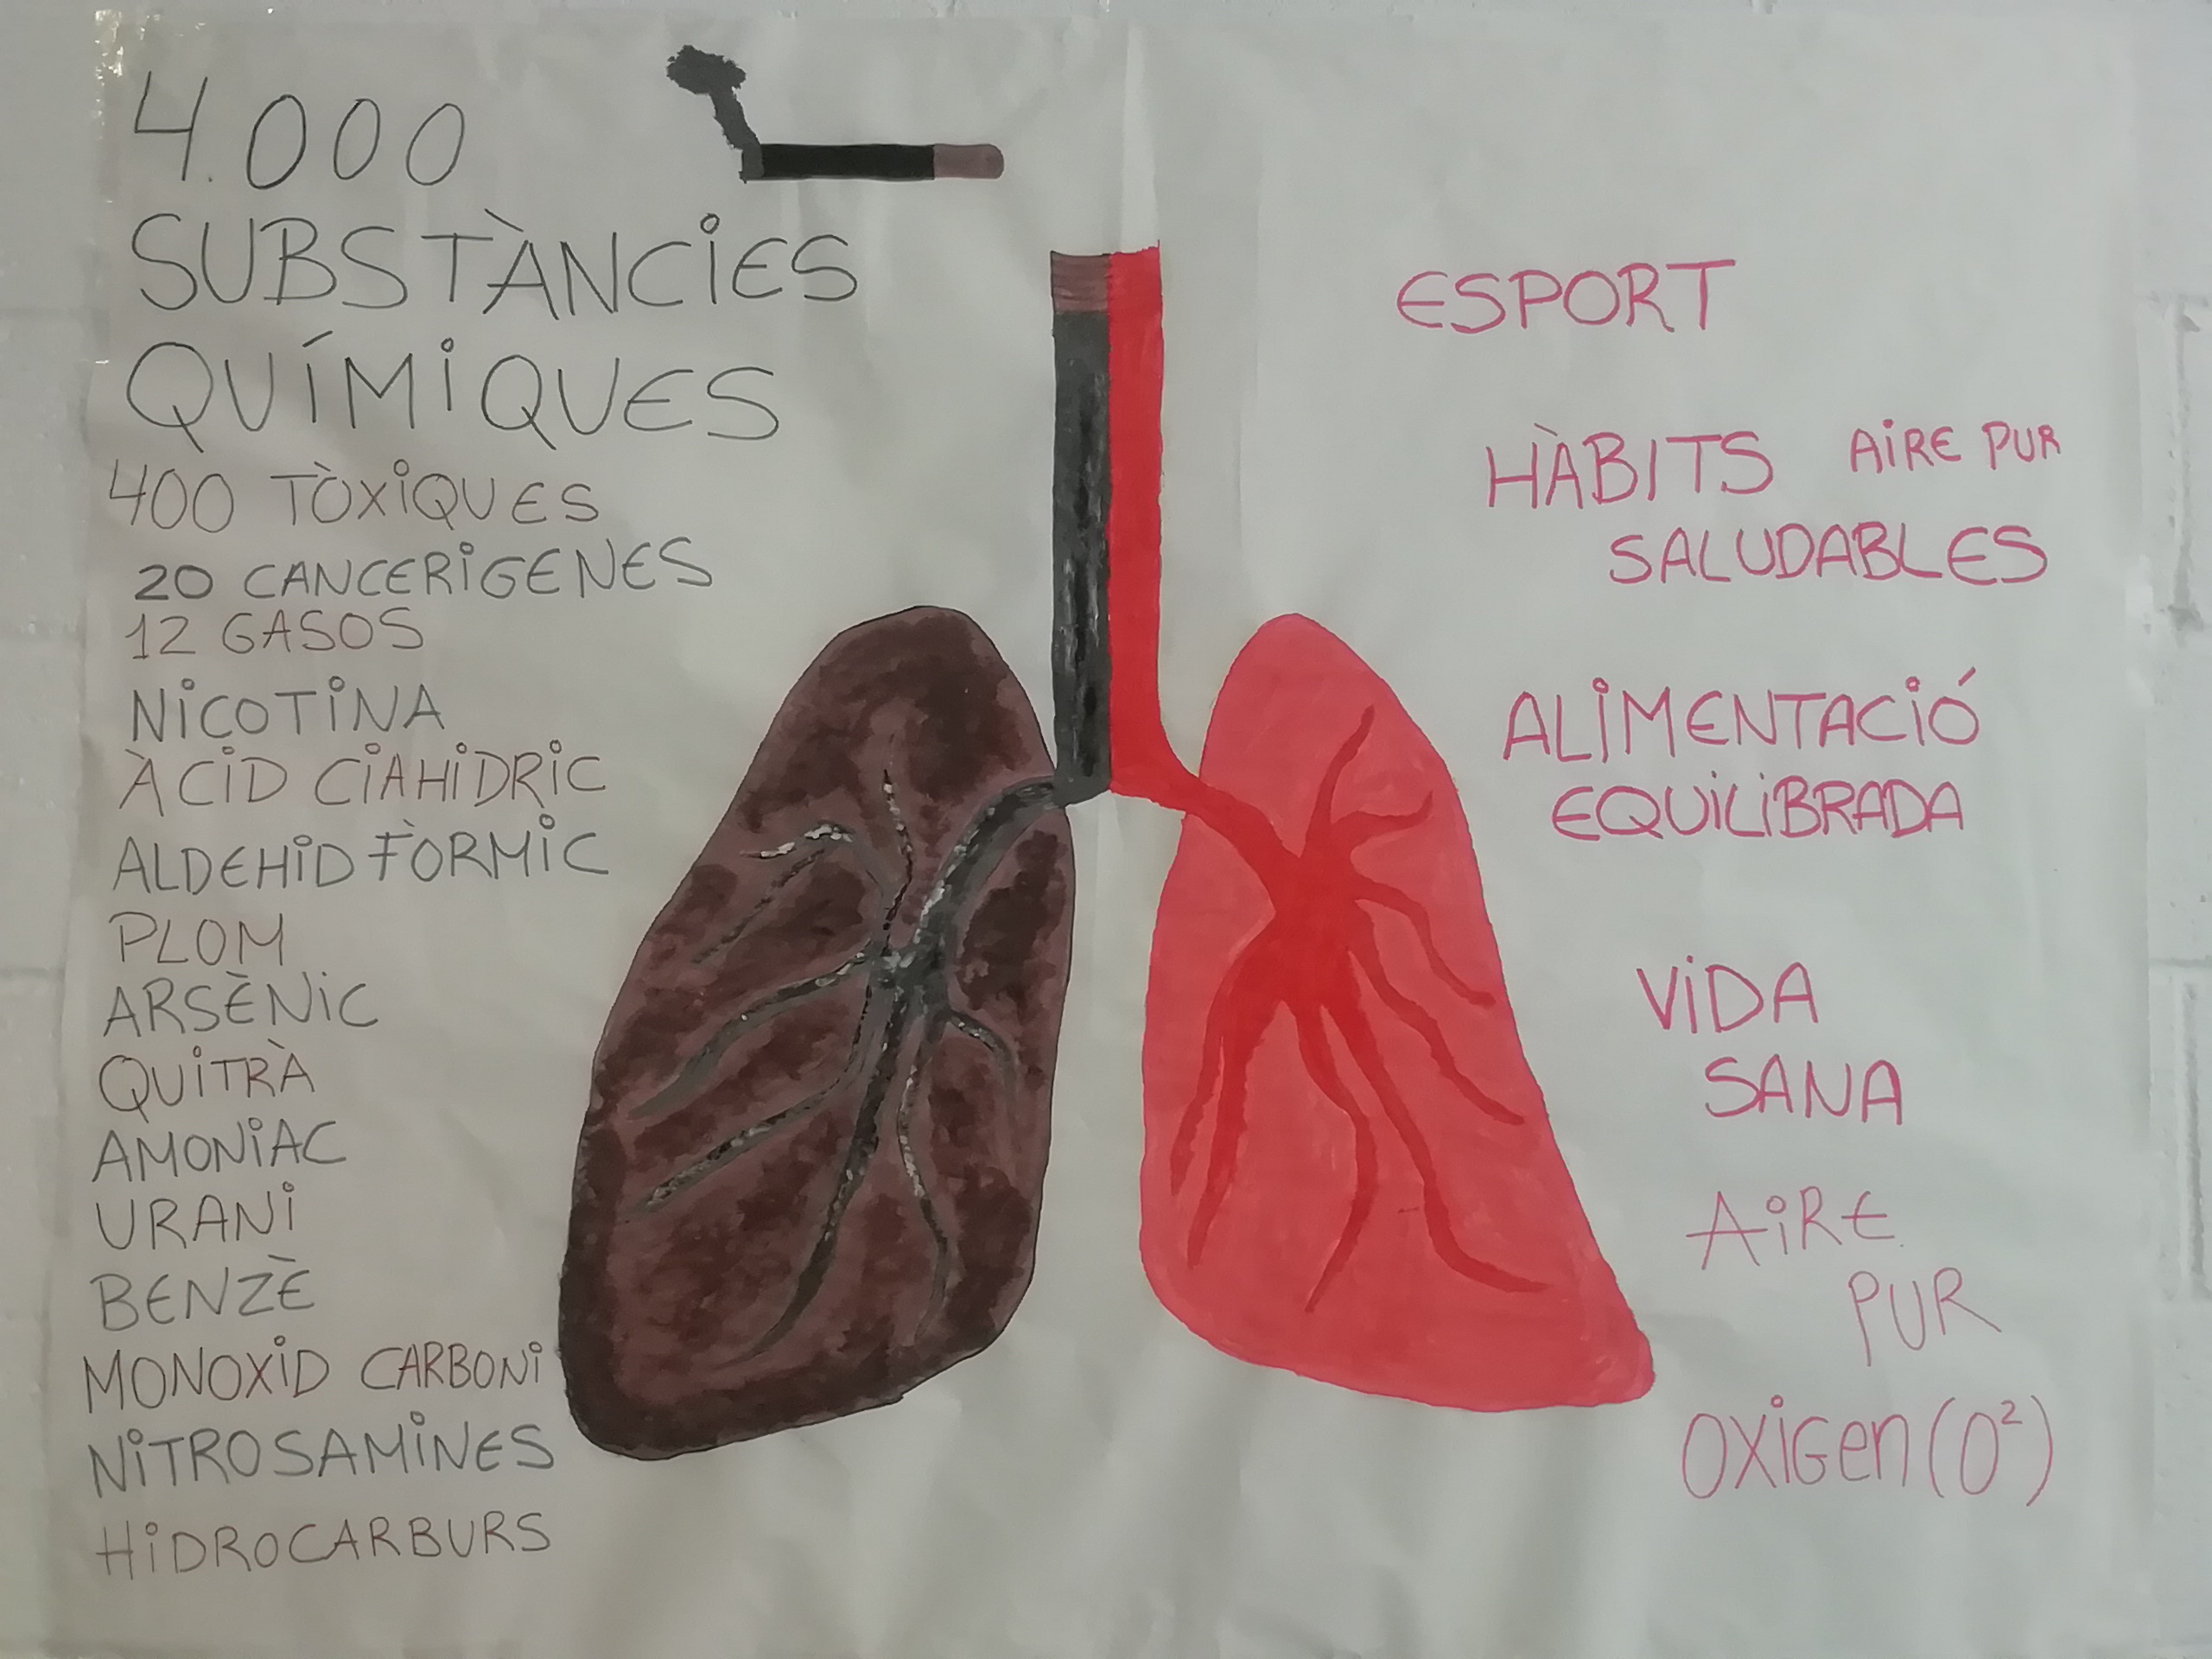 4.000
SUBSTÀNCIES
QUÍMIQUES
400 TÒXIQUES
20 CANCERIGENES
12 GASOS
NICOTINA
ÀCID CIAHIDRIC
ALDEHID FÒRMIC
PLOM
ARSÈNIC
QUITRÀ
AMONIAC
URANI
BENZÈ
MONOXID CARBONI
NITROSAMINES
HIDROCARBURS
ESPORT
HÀBITS AIRE PUR
SALUDABLES
ALIMENTACIÓ
EQUILIBRADA
VIDA
SANA
AIRE
PUR
OXIGEN (O²)